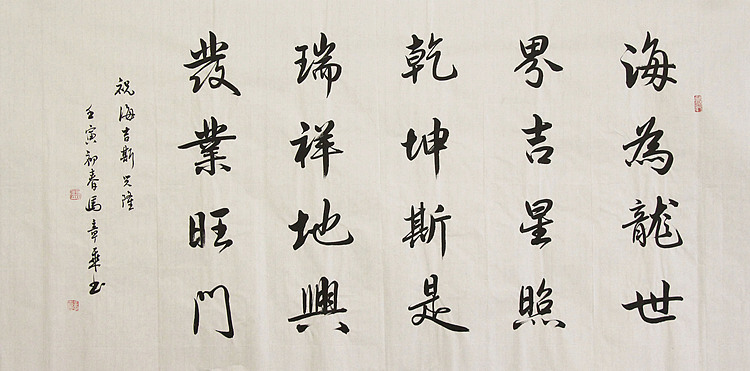 海為龍世
界吉星照
乾坤斯是
瑞祥地興
發業旺門
祝海吉斯興隆
壬寅初春馬章乘书